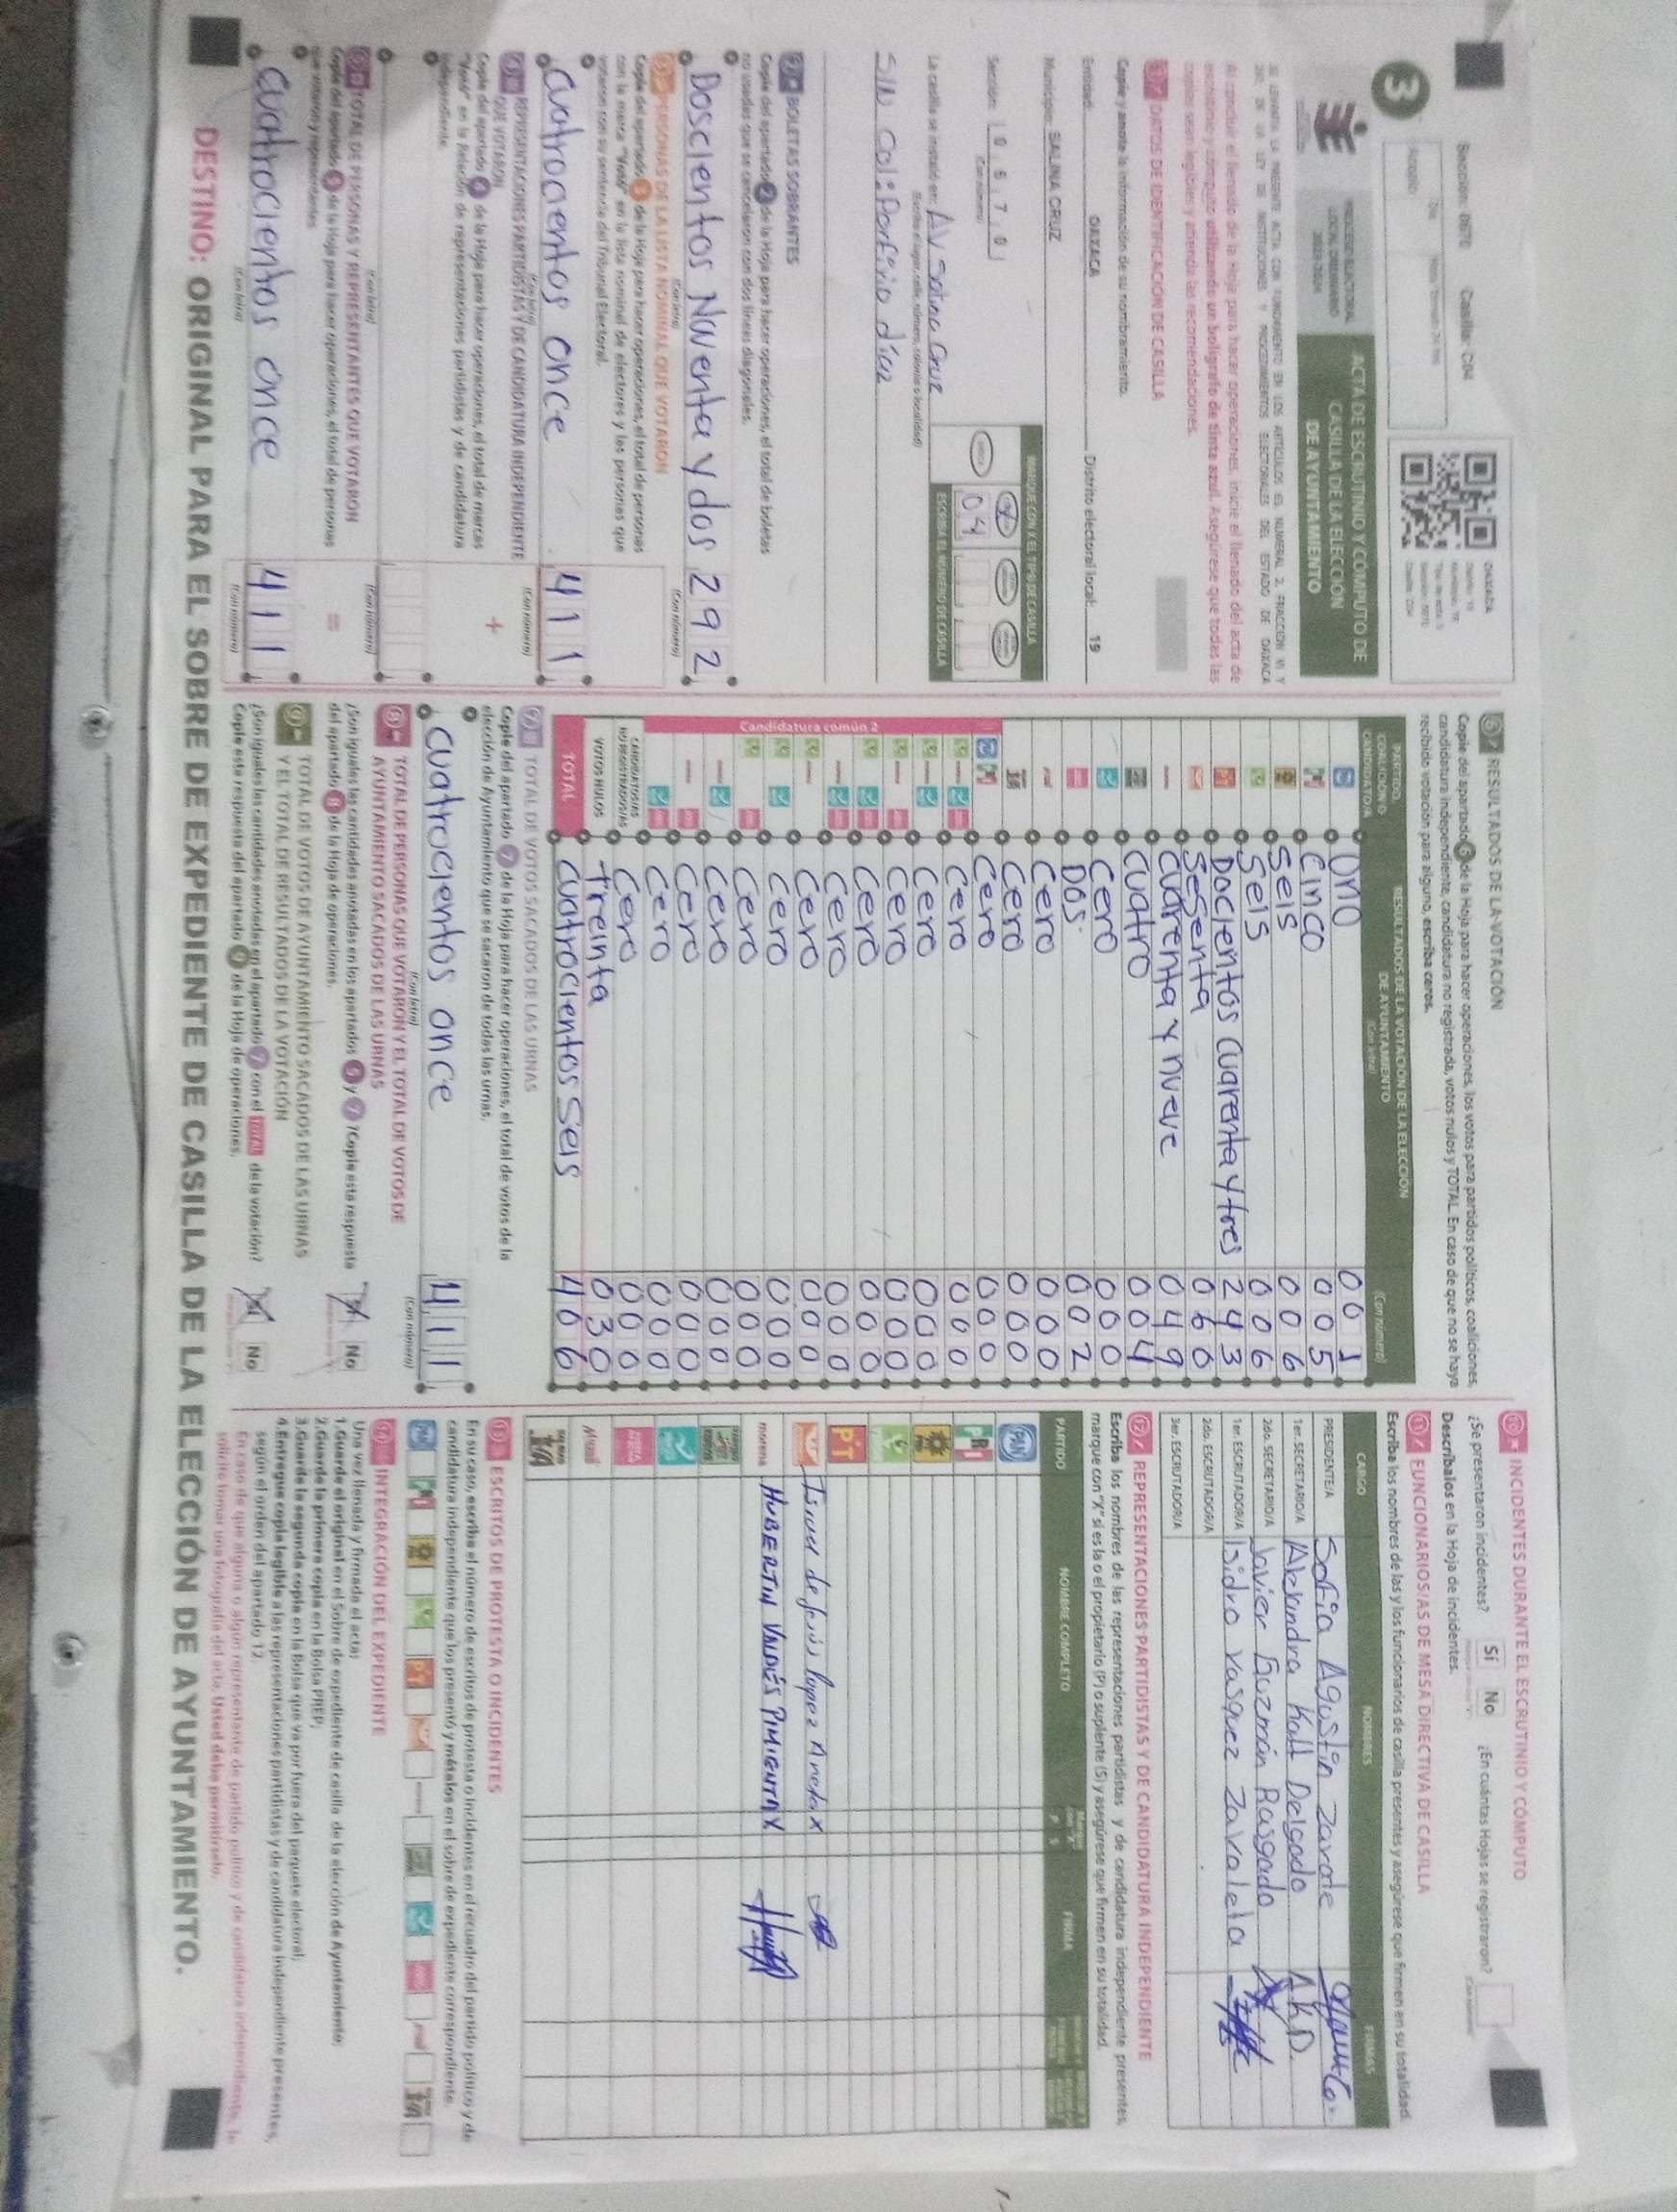 Sección: 0570 Casilla: C04
3
PROCESO ELECTORAL
LOCAL ORDINARIO
2023-2024
ACTA DE ESCRUTINIO Y CÓMPUTO DE
CASILLA DE LA ELECCIÓN
DE AYUNTAMIENTO
OAXACA
SE LEVANTA LA PRESENTE ACTA CON FUNDAMENTO EN LOS ARTÍCULOS
Al concluir el llenado de la Hoja para hacer operaciones, inicie el llenado del acta de
escrutinio y cómputo utilizando un bolígrafo de tinta azul. Asegúrese que todas las
copias sean legibles y atienda las recomendaciones.
1 DATOS DE IDENTIFICACIÓN DE CASILLA
Copie y anote la información de su nombramiento.
Entidad: OAXACA Distrito electoral local: 19
Municipio: SALINA CRUZ
Sección: 0 5 7 0
(Con número)
MARQUE CON X EL TIPO DE CASILLA
04
ESCRIBA EL NÚMERO DE CASILLA
La casilla se instaló en: AV Salina Cruz
(Escriba el lugar, calle, número, colonia o localidad)
SIN Col: Porfirio diaz
2 BOLETAS SOBRANTES
Copie del apartado 2 de la Hoja para hacer operaciones, el total de boletas
no usadas que se cancelaron con dos líneas diagonales.
Doscientos Noventa y dos 292
(Con letra) (Con número)
3 PERSONAS DE LA LISTA NOMINAL QUE VOTARON
Copie del apartado 3 de la Hoja para hacer operaciones, el total de personas
con la marca "Votó" en la lista nominal de electores y las personas que
votaron con su sentencia del Tribunal Electoral.
Cuatrocientos once 411
(Con letra) (Con número)
4 REPRESENTACIONES PARTIDISTAS Y DE CANDIDATURA INDEPENDIENTE
QUE VOTARON
Copie del apartado 4 de la Hoja para hacer operaciones, el total de marcas
"Votó" en la Relación de representaciones partidistas y de candidatura
independiente.
+
(Con letra) (Con número)
5 TOTAL DE PERSONAS Y REPRESENTANTES QUE VOTARON
Copie del apartado 5 de la Hoja para hacer operaciones, el total de personas
que votaron y representantes
=
Cuatrocientos once 411
(Con letra) (Con número)
6 RESULTADOS DE LA VOTACIÓN
Copie del apartado 6 de la Hoja para hacer operaciones, los votos para partidos políticos, coaliciones,
candidatura independiente, candidatura no registrada, votos nulos y TOTAL. En caso de que no se haya
recibido votación para alguno, escriba ceros.
PARTIDO,
COALICIÓN O
CANDIDATO/A
RESULTADOS DE LA VOTACIÓN DE LA ELECCIÓN
DE AYUNTAMIENTO
(Con letra)
(Con número)
Uno 001
Cinco 005
Seis 006
Seis 006
Docientos Cuarenta y tres 243
Sesenta 060
Cuarenta y nueve 049
Cuatro 004
Cero 000
Dos 002
Cero 000
Cero 000
Cero 000
Candidatura común 2
Cero 000
Cero 000
Cero 000
Cero 000
Cero 000
Cero 000
Cero 000
Cero 000
Cero 000
Cero 000
Cero 000
CANDIDATOS/AS
NO REGISTRADOS/AS Cero 000
VOTOS NULOS treinta 030
TOTAL Cuatrocientos Seis 406
7 TOTAL DE VOTOS SACADOS DE LAS URNAS
Copie del apartado 7 de la Hoja para hacer operaciones, el total de votos de la
elección de Ayuntamiento que se sacaron de todas las urnas.
Cuatrocientos once 411
(Con letra) (Con número)
8 TOTAL DE PERSONAS QUE VOTARON Y EL TOTAL DE VOTOS DE
AYUNTAMIENTO SACADOS DE LAS URNAS
¿Son iguales las cantidades anotadas en los apartados 5 y 7? Copie esta respuesta
del apartado 8 de la Hoja de operaciones.
Sí No
9 TOTAL DE VOTOS DE AYUNTAMIENTO SACADOS DE LAS URNAS
Y EL TOTAL DE RESULTADOS DE LA VOTACIÓN
¿Son iguales las cantidades anotadas en el apartado 7 con el TOTAL de la votación?
Copie esta respuesta del apartado 9 de la Hoja de operaciones.
Sí No
10 INCIDENTES DURANTE EL ESCRUTINIO Y CÓMPUTO
¿Se presentaron incidentes? Sí No ¿En cuántas Hojas se registraron?
Descríbalos en la Hoja de incidentes.
11 FUNCIONARIOS/AS DE MESA DIRECTIVA DE CASILLA
Escriba los nombres de las y los funcionarios de casilla presentes y asegúrese que firmen en su totalidad.
CARGO NOMBRES FIRMAS
PRESIDENTE/A Sofia Agustin Zarate
1er. SECRETARIO/A Alexindra Katt Delgado A.K.D.
2do. SECRETARIO/A Javier Guzmán Rasgado
1er. ESCRUTADOR/A Isidro Vasquez Zavaleta
2do. ESCRUTADOR/A
3er. ESCRUTADOR/A
12 REPRESENTACIONES PARTIDISTAS Y DE CANDIDATURA INDEPENDIENTE
Escriba los nombres de las representaciones partidistas y de candidatura independiente presentes,
marque con "X" si es la o el propietario (P) o suplente (S) y asegúrese que firmen en su totalidad.
PARTIDO NOMBRE COMPLETO P S FIRMA
PAN
PRI
PT
de Jesús lopez X
morena HUBERTIN VALDÉS PIMIENTA X
13 ESCRITOS DE PROTESTA O INCIDENTES
En su caso, escriba el número de escritos de protesta o incidentes en el recuadro del partido político y de
candidatura independiente que los presentó y métalos en el sobre de expediente correspondiente.
14 INTEGRACIÓN DEL EXPEDIENTE
Una vez llenada y firmada el acta:
1. Guarde el original en el Sobre de expediente de casilla de la elección de Ayuntamiento;
2. Guarde la primera copia en la Bolsa PREP;
3. Guarde la segunda copia en la Bolsa que va por fuera del paquete electoral;
4. Entregue copia legible a las representaciones partidistas y de candidatura independiente presentes,
según el orden del apartado 12.
En caso de que alguna o algún representante de partido político y de candidatura independiente, le
solicite tomar una fotografía del acta, Usted debe permitírselo.
DESTINO: ORIGINAL PARA EL SOBRE DE EXPEDIENTE DE CASILLA DE LA ELECCIÓN DE AYUNTAMIENTO.